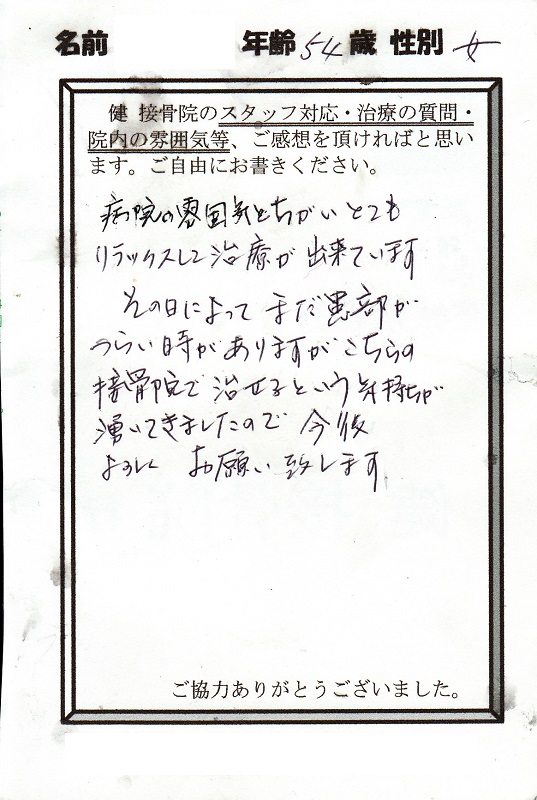 名前 年齢 54 歳 性別 女
健 接骨院のスタッフ対応・治療の質問・
院内の雰囲気等、ご感想を頂ければと思い
ます。ご自由にお書きください。
病院の雰囲気とちがいとても
リラックスして治療が出来ています
その日によって まだ患部が
つらい時がありますがこちらの
接骨院で治せるという気持ちが
湧いてきましたので 今後
よろしく お願い致します
ご協力ありがとうございました。